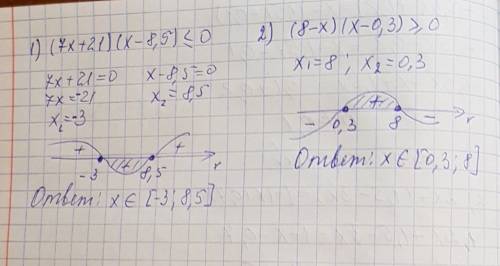 1) (7x+21)(x-8,5) ≤ 0
7x+21=0 x-8,5=0
7x=-21 x₂=8,5
x₁=-3
+ + +
-3 8,5 x
Ответ: x ∈ [-3; 8,5]
2) (8-x)(x-0,3) ≥ 0
x₁=8 ; x₂=0,3
- + -
0,3 8 x
Ответ: x ∈ [0,3; 8]